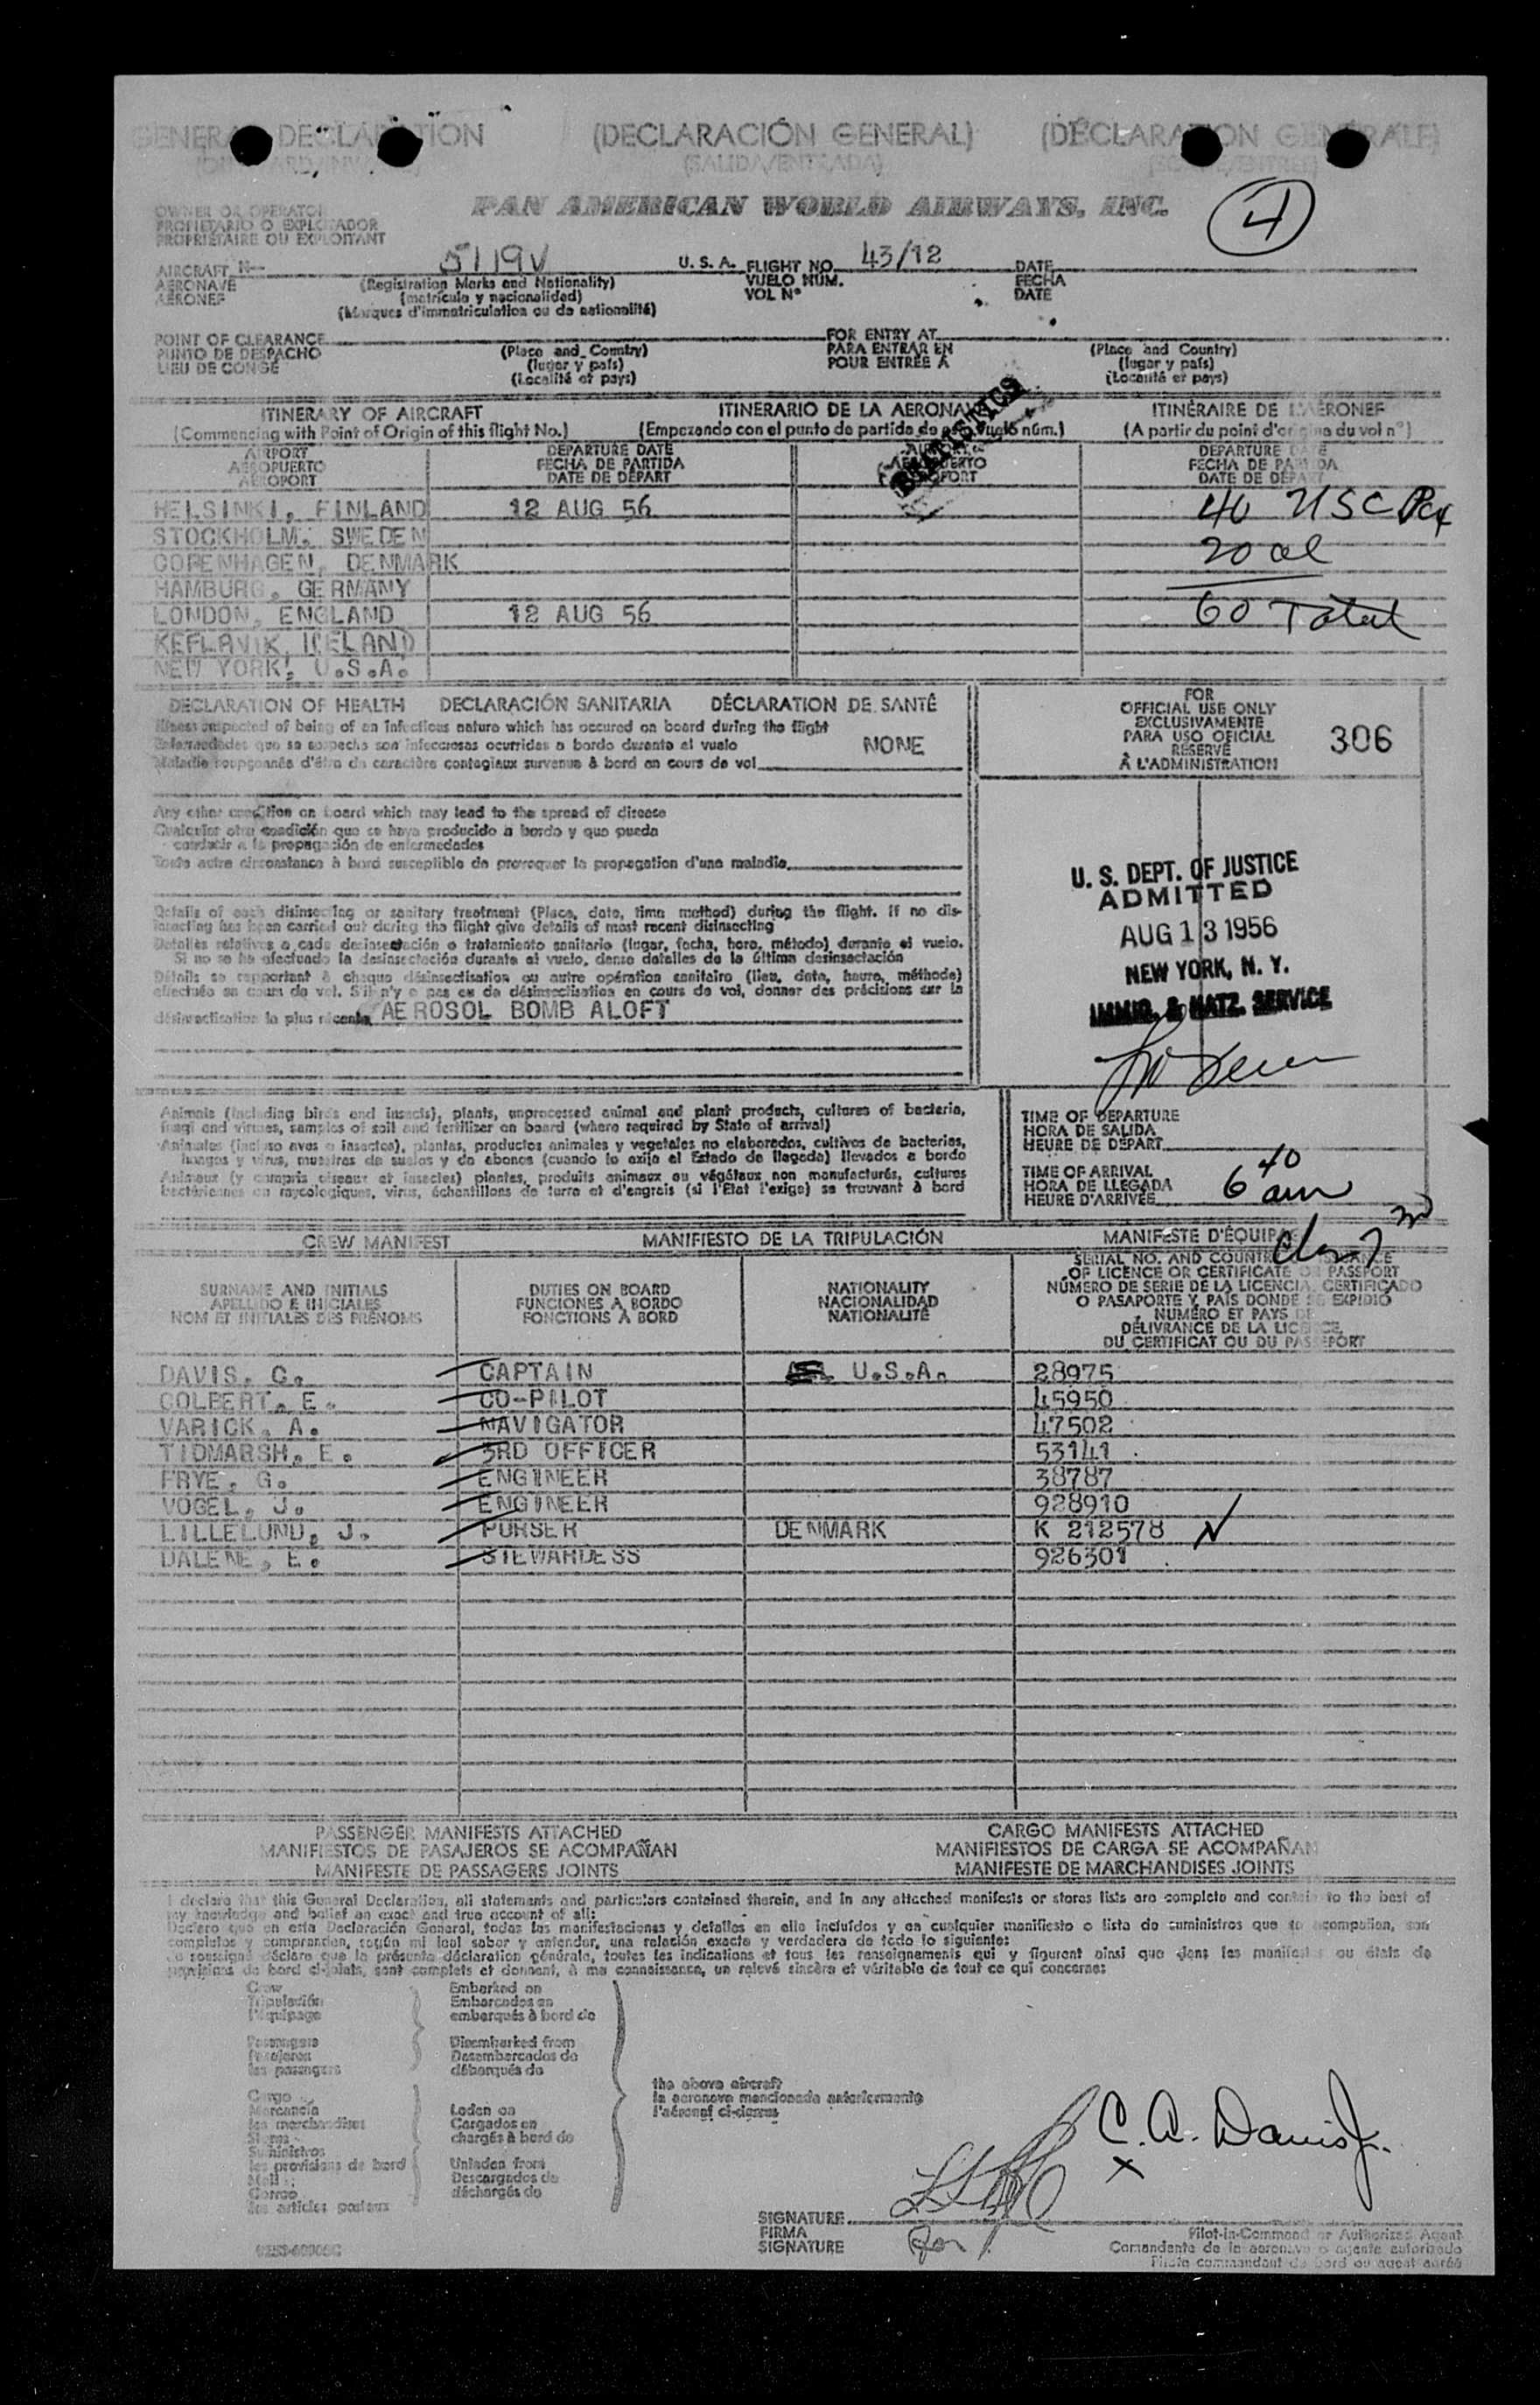 GENERAL DECLARATION (DECLARACIÓN GENERAL) (DÉCLARATION GÉNÉRALE)
(SALIDA/ENTRADA)
PAN AMERICAN WORLD AIRWAYS, INC.
4
OWNER OR OPERATOR
PROPIETARIO O EXPLOTADOR
PROPRIÉTAIRE OU EXPLOITANT
AIRCRAFT N- 5119V U. S. A. FLIGHT NO. 43/12 DATE
AERONAVE (Registration Marks and Nationality) VUELO NÚM. FECHA
AÉRONEF (matrícula y nacionalidad) VOL Nº DATE
(Marques d'immatriculation ou de nationalité)
POINT OF CLEARANCE FOR ENTRY AT
PUNTO DE DESPACHO (Place and Country) PARA ENTRAR EN (Place and Country)
LIEU DE CONGÉ (lugar y país) POUR ENTRÉE À (lugar y país)
(Localité et pays) (Localité et pays)
STATISTICS
ITINERARY OF AIRCRAFT ITINERARIO DE LA AERONAVE ITINÉRAIRE DE L'AÉRONEF
(Commencing with Point of Origin of this flight No.) (Empezando con el punto de partida de este vuelo núm.) (A partir du point d'origine du vol nº)
AIRPORT DEPARTURE DATE AIRPORT DEPARTURE DATE
AEROPUERTO FECHA DE PARTIDA AEROPUERTO FECHA DE PARTIDA
AÉROPORT DATE DE DÉPART AÉROPORT DATE DE DÉPART
HELSINKI, FINLAND 12 AUG 56 40 USC
STOCKHOLM, SWEDEN 20 al
COPENHAGEN, DENMARK
HAMBURG, GERMANY
LONDON, ENGLAND 12 AUG 56 60 Total
KEFLAVIK, ICELAND
NEW YORK, U.S.A.
DECLARATION OF HEALTH DECLARACIÓN SANITARIA DÉCLARATION DE SANTÉ
Illness suspected of being of an infectious nature which has occured on board during the flight
Enfermedades que se sospecha son infecciosas ocurridas a bordo durante el vuelo NONE
Maladie soupçonnée d'être de caractère contagieux survenue à bord en cours de vol
FOR
OFFICIAL USE ONLY
EXCLUSIVAMENTE
PARA USO OFICIAL 306
RÉSERVÉ
À L'ADMINISTRATION
Any other condition on board which may lead to the spread of disease
Cualquier otra condición que se haya producido a bordo y que pueda
conducir a la propagación de enfermedades
Toute autre circonstance à bord susceptible de provoquer la propagation d'une maladie
Details of each disinsecting or sanitary treatment (Place, date, time method) during the flight. If no dis-
insecting has been carried out during the flight give details of most recent disinsecting
Detalles relativos a cada desinsectación o tratamiento sanitario (lugar, fecha, hora, método) durante el vuelo.
Si no se ha efectuado la desinsectación durante el vuelo, dense detalles de la última desinsectación
Détails se rapportant à chaque désinsectisation ou autre opération sanitaire (lieu, date, heure, méthode)
effectués en cours de vol. S'il n'y a pas eu de désinsectisation en cours de vol, donner des précisions sur la
désinsectisation la plus récente AEROSOL BOMB ALOFT
U. S. DEPT. OF JUSTICE
ADMITTED
AUG 13 1956
NEW YORK, N. Y.
IMMIG. & NATZ. SERVICE
Animals (including birds and insects), plants, unprocessed animal and plant products, cultures of bacteria,
fungi and viruses, samples of soil and fertilizer on board (where required by State of arrival)
Animales (incluso aves e insectos), plantas, productos animales y vegetales no elaborados, cultivos de bacterias,
hongos y virus, muestras de suelos y de abonos (cuando lo exija el Estado de llegada) llevados a bordo
Animaux (y compris oiseaux et insectes) plantes, produits animaux ou végétaux non manufacturés, cultures
bactériennes ou mycologiques, virus, échantillons de terre et d'engrais (si l'Etat l'exige) se trouvant à bord
TIME OF DEPARTURE
HORA DE SALIDA
HEURE DE DÉPART
TIME OF ARRIVAL
HORA DE LLEGADA 6 40 am
HEURE D'ARRIVÉE
CREW MANIFEST MANIFIESTO DE LA TRIPULACIÓN MANIFESTE D'ÉQUIPAGE
SERIAL NO. AND COUNTRY OF ISSUANCE
OF LICENCE OR CERTIFICATE OR PASSPORT
SURNAME AND INITIALS DUTIES ON BOARD NATIONALITY NÚMERO DE SERIE DE LA LICENCIA, CERTIFICADO
APELLIDO E INICIALES FUNCIONES A BORDO NACIONALIDAD O PASAPORTE Y PAÍS DONDE SE EXPIDIÓ
NOM ET INITIALES DES PRÉNOMS FONCTIONS À BORD NATIONALITÉ NUMÉRO ET PAYS DE
DÉLIVRANCE DE LA LICENCE,
DU CERTIFICAT OU DU PASSEPORT
DAVIS, C. CAPTAIN U.S.A. 28975
COLBERT, E. CO-PILOT 45950
VARICK, A. NAVIGATOR 47502
TIDMARSH, E. 3RD OFFICER 53141
FRYE, G. ENGINEER 38787
VOGEL, J. ENGINEER 928910
LILLELUND, J. PURSER DENMARK K 212578
DALENE, E. STEWARDESS 926301
PASSENGER MANIFESTS ATTACHED CARGO MANIFESTS ATTACHED
MANIFIESTOS DE PASAJEROS SE ACOMPAÑAN MANIFIESTOS DE CARGA SE ACOMPAÑAN
MANIFESTE DE PASSAGERS JOINTS MANIFESTE DE MARCHANDISES JOINTS
I declare that this General Declaration, all statements and particulars contained therein, and in any attached manifests or stores lists are complete and contain to the best of
my knowledge and belief an exact and true account of all:
Declaro que en esta Declaración General, todas las manifestaciones y detalles en ella incluídos y en cualquier manifiesto o lista de suministros que se acompañan, son
completos y comprenden, según mi leal saber y entender, una relación exacta y verdadera de todo lo siguiente:
Je soussigné déclare que la présente déclaration générale, toutes les indications et tous les renseignements qui y figurent ainsi que dans les manifestes ou états de
provisions de bord ci-joints, sont complets et donnent, à ma connaissance, un relevé sincère et véritable de tout ce qui concerne:
Crew Embarked on
Tripulación Embarcados en
l'équipage embarqués à bord de
Passengers Disembarked from
Pasajeros Desembarcados de
les passagers débarqués de
the above aircraft
la aeronave mencionada anteriormente
l'aéronef ci-dessus
Cargo
Mercancía Laden on
les marchandises Cargados en
Stores chargés à bord de
Suministros
les provisions de bord Unladen from
Mail Descargados de
Correo déchargés de
les articles postaux
C. A. Davis Jr.
X
SIGNATURE
FIRMA
SIGNATURE
Pilot-in-Command or Authorized Agent
Comandante de la aeronave o agente autorizado
Pilote commandant de bord ou agent agréé